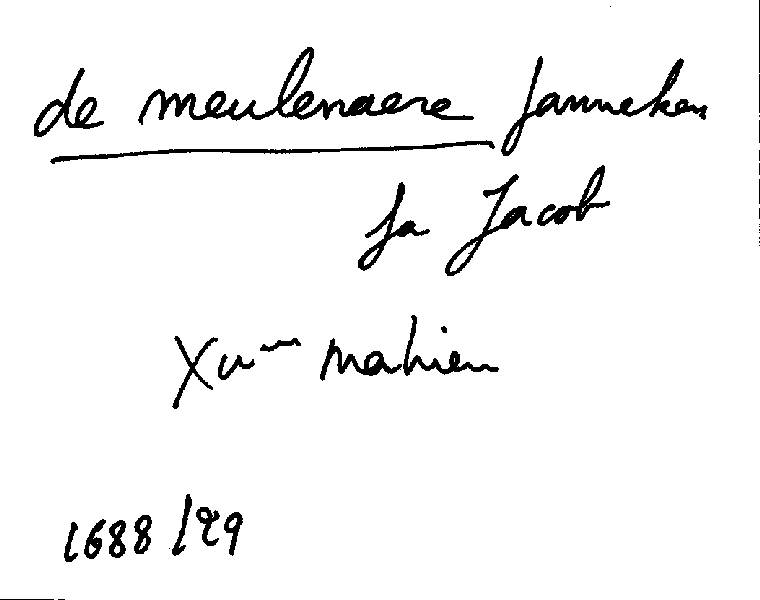 de meulenaere Janneken
fa Jacob
X Mahieu
1688/29